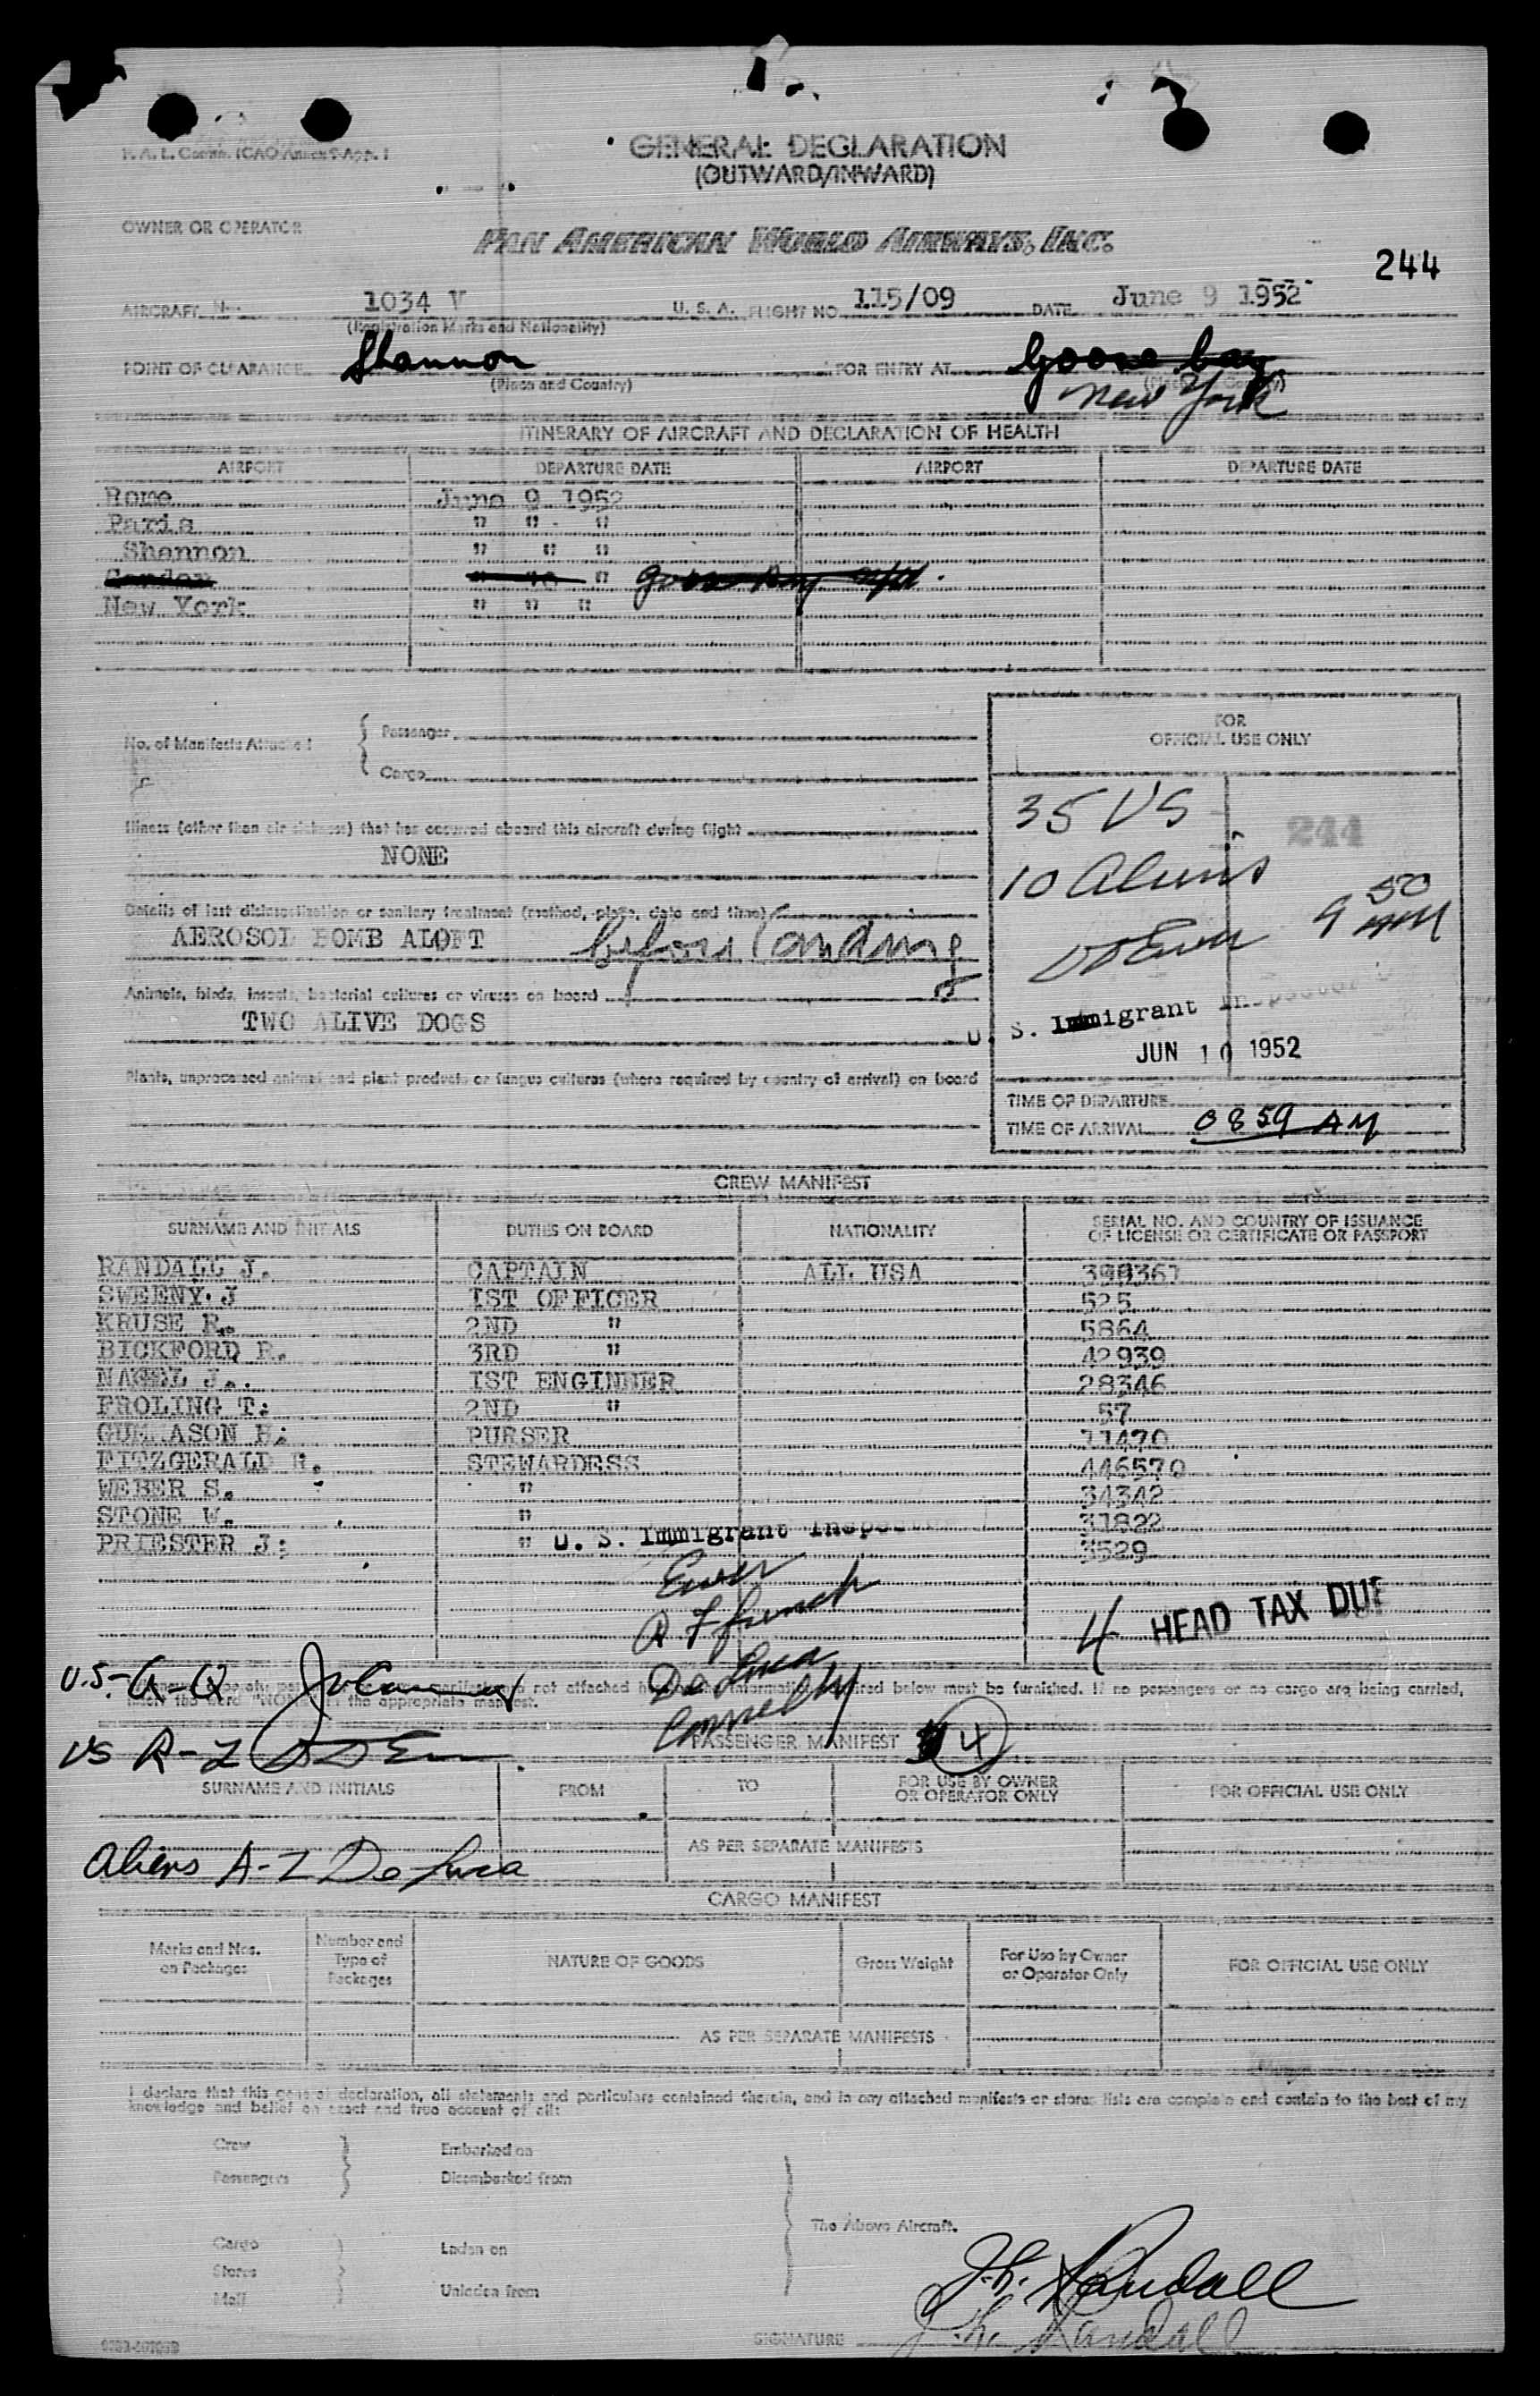 GENERAL DECLARATION
(OUTWARD/INWARD)
OWNER OR OPERATOR
PAN AMERICAN WORLD AIRWAYS, INC.
244
AIRCRAFT No. 1034 V U. S. A. FLIGHT NO. 115/09 DATE June 9 1952
(Registration Marks and Nationality)
POINT OF CLEARANCE Shannon FOR ENTRY AT Goose bay
(Place and Country) (Place and Country)
New York
ITINERARY OF AIRCRAFT AND DECLARATION OF HEALTH
AIRPORT DEPARTURE DATE AIRPORT DEPARTURE DATE
Rome June 9 1952
Paris " " "
Shannon " " "
Gander " 10 " Goose Bay
New York " " "
No. of Manifests Attached { Passenger
Cargo
FOR
OFFICIAL USE ONLY
35 US
244
10 Aliens
9 50 AM
Illness (other than air sickness) that has occurred aboard this aircraft during flight
NONE
Details of last disinsectization or sanitary treatment (method, place, date and time)
AEROSOL BOMB ALOFT before landing
Animals, birds, insects, bacterial cultures or viruses on board
TWO ALIVE DOGS
U. S. Immigrant Inspector
JUN 10 1952
Plants, unprocessed animal and plant products or fungus cultures (where required by country of arrival) on board
TIME OF DEPARTURE
TIME OF ARRIVAL 0859 AM
CREW MANIFEST
SURNAME AND INITIALS DUTIES ON BOARD NATIONALITY SERIAL NO. AND COUNTRY OF ISSUANCE
OF LICENSE OR CERTIFICATE OR PASSPORT
RANDALL J. CAPTAIN ALL USA 398367
SWEENY.J IST OFFICER 525
KRUSE R. 2ND " 5864
BICKFORD R. 3RD " 42939
NAGEL J. IST ENGINEER 28346
FROLING T: 2ND " 57
PURSER 11470
FITZGERALD H. STEWARDESS 446570
WEBER S. " 34342
STONE W. " 31822
PRIESTER J: " 3529
U. S. Immigrant Inspector
Ewer
4 HEAD TAX DUE
De Luca
Connelly
U.S. A-Q
not attached information required below must be furnished. If no passengers or no cargo are being carried,
the word "NONE" in the appropriate manifest.
US R-Z
PASSENGER MANIFEST 4
SURNAME AND INITIALS FROM TO FOR USE BY OWNER
OR OPERATOR ONLY FOR OFFICIAL USE ONLY
AS PER SEPARATE MANIFESTS
Aliens A-Z De Luca
CARGO MANIFEST
Marks and Nos.
on Packages Number and
Type of
Packages NATURE OF GOODS Gross Weight For Use by Owner
or Operator Only FOR OFFICIAL USE ONLY
AS PER SEPARATE MANIFESTS
I declare that this general declaration, all statements and particulars contained therein, and in any attached manifests or stores lists are complete and contain to the best of my
knowledge and belief an exact and true account of all:
Crew Embarked on
Passengers Disembarked from
The Above Aircraft.
Cargo Laden on
Stores
Mail Unladen from
J.H. Randall
SIGNATURE J.H. Randall